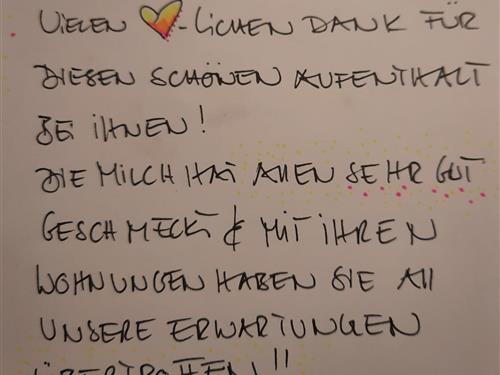 VIELEN ❤-LICHEN DANK FÜR
DIESEN SCHÖNEN AUFENTHALT
BEI IHNEN!
DIE MILCH HAT ALLEN SEHR GUT
GESCHMECKT & MIT IHREN
WOHNUNGEN HABEN SIE All
UNSERE ERWARTUNGEN
ÜBERTROFFEN!!